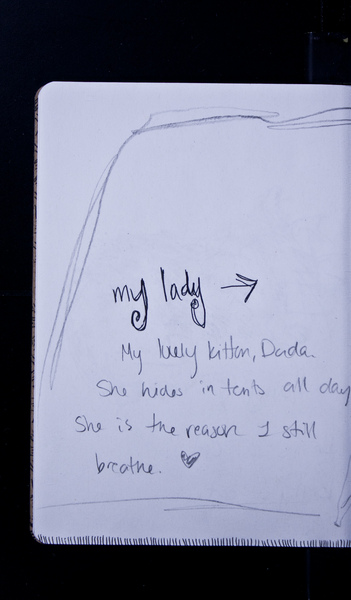 my lady →
My lovely kitten, Dada.
She hides in tents all day
She is the reason I still
breathe. ♡